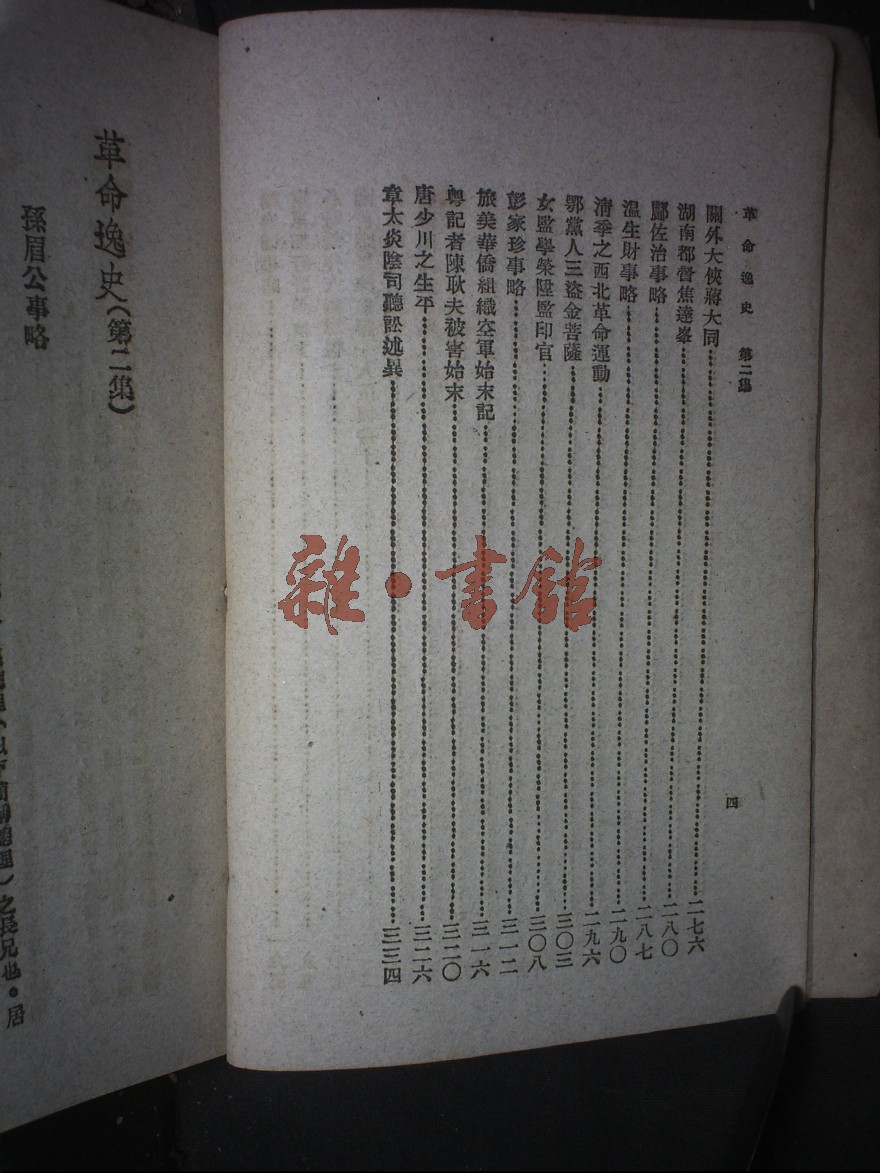 革命逸史　第二集
四
關外大俠蔣大同……二七六
湖南都督焦達峯……二八〇
鄺佐治事略……二八七
溫生財事略……二九〇
清季之西北革命運動……二九六
鄂黨人三盜金菩薩……三〇三
女監學榮陞監印官……三〇八
彭家珍事略……三一二
旅美華僑組織空軍始末記……三一六
粵記者陳耿夫被害始末……三二〇
唐少川之生平……三二六
章太炎陰司聽訟述異……三三四
革命逸史（第二集）
孫眉公事略
之長兄也。居
雜·書館